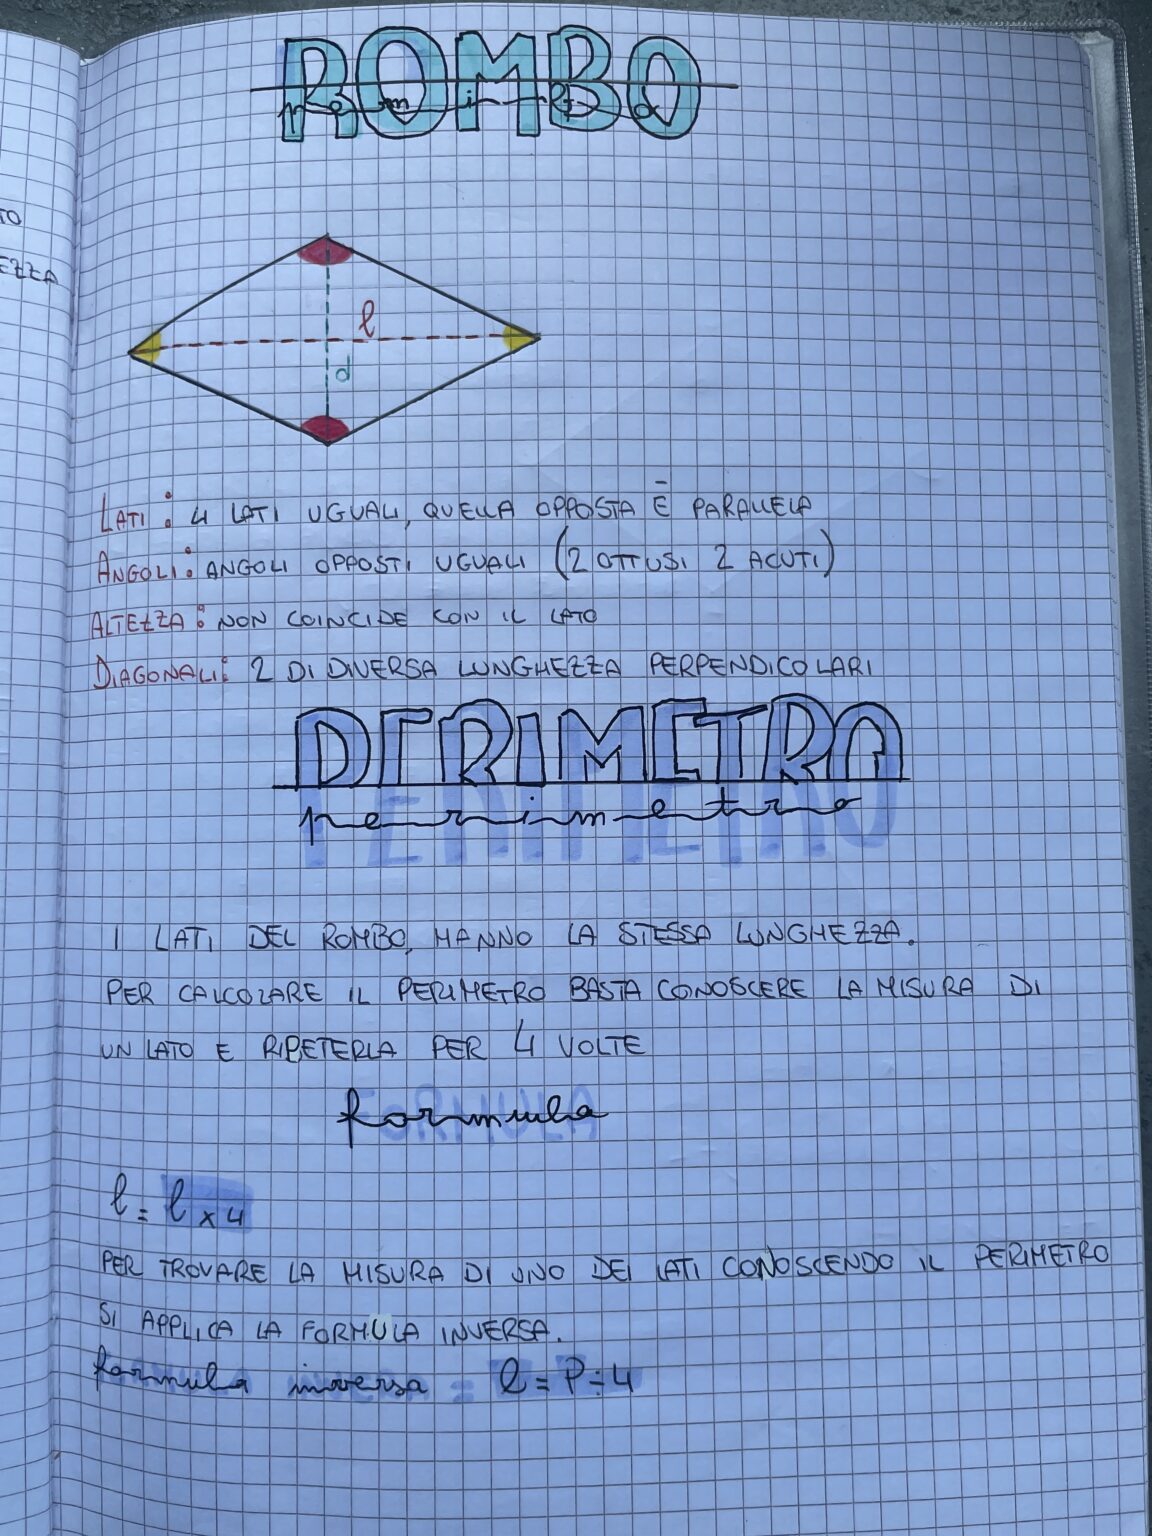 ROMBO
rombo
TO
EZZA
l
d
LATI: 4 LATI UGUALI, QUELLA OPPOSTA È PARALLELA
ANGOLI: ANGOLI OPPOSTI UGUALI (2 OTTUSI 2 ACUTI)
ALTEZZA: NON COINCIDE CON IL LATO
DIAGONALI: 2 DI DIVERSA LUNGHEZZA PERPENDICOLARI
PERIMETRO
perimetro
I LATI DEL ROMBO, HANNO LA STESSA LUNGHEZZA.
PER CALCOLARE IL PERIMETRO BASTA CONOSCERE LA MISURA DI
UN LATO E RIPETERLA PER 4 VOLTE
formula
l = l x 4
PER TROVARE LA MISURA DI UNO DEI LATI CONOSCENDO IL PERIMETRO
SI APPLICA LA FORMULA INVERSA.
formula inversa = l = P ÷ 4